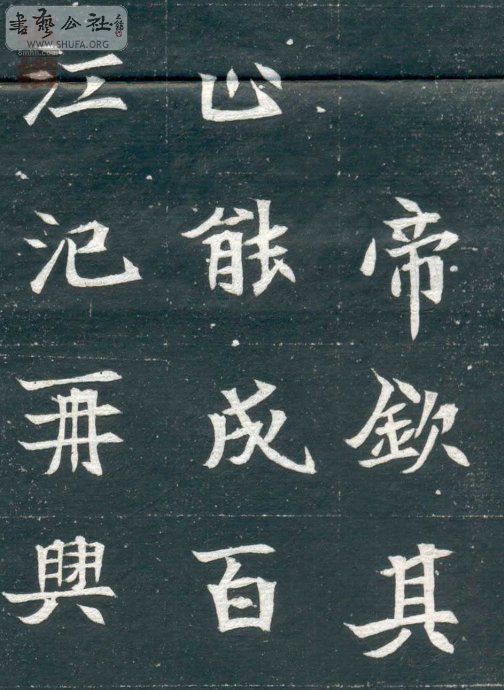 書藝公社
WWW.SHUFA.ORG
帝欽其
能成百
江汜再興